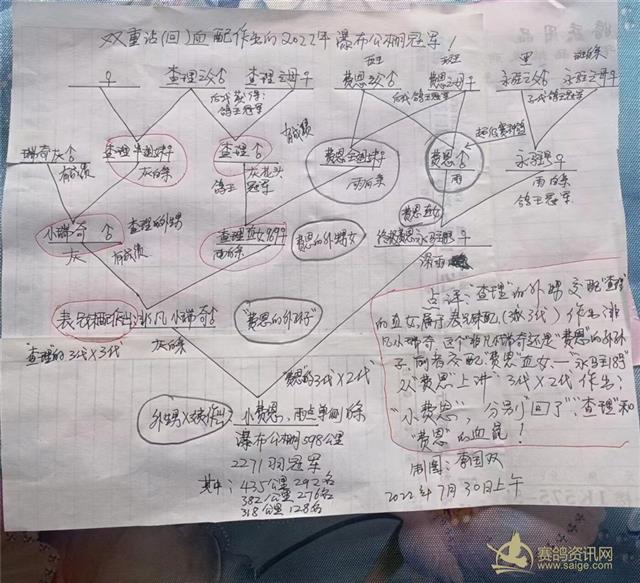 双重沾(回)血配作出的2022年瀑布公棚冠军!
♀ 查理之父♂ 查理之母♀ 费恩之父♂ 费恩之母♀ 永强之父♂ 永强之母♀
后代获得:
鸽王冠军
后代鸽王冠军
有成绩
瑞奇灰♂ 查理半同妹♀ 查理♂ 费恩全同妹♀ 费恩♂ 永强♀
有成绩 灰白条 鸽王 冠军 雨白条 雨 雨白条
鸽王冠军
小瑞奇♂ 查理的外甥 查理直女 费恩的外甥女 费恩直女
灰 有成绩 雨白条 深雨
表兄妹配作出:非凡小瑞奇♂ "费恩的外孙"
"查理"的3代X3代" 灰白条
"费恩的3代X2代"
外甥X表作出 小费恩,雨点单侧条
瀑布公棚598公里
2271羽冠军
其中:435公里292名
382公里276名
318公里128名
点评:"查理"的外甥交配"查理"
的直女,属于表兄妹配(3代X3代)作出"非
凡小瑞奇",这个"非凡小瑞奇"还是"费恩"的外孙
子,前者交配"费恩"直女—"永强189"
从"费恩"上讲"3代X2代作出:
"小费恩",分别"回了""查理"和
"费恩"的血统!
制图:
2022年7月30日上午
赛鸽资讯网
www.saige.com